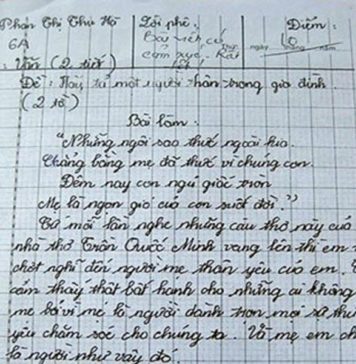 Phan Thị Thu Hà Lời phê: Điểm:
6A Bài viết có 10
cảm xúc. ngày tháng năm
: Văn (2 tiết) tốt!
Đề: Hãy tả một người thân trong gia đình.
(2 tờ)
Bài làm.
"Những ngôi sao thức ngoài kia
Chẳng bằng mẹ đã thức vì chúng con.
Đêm nay con ngủ giấc tròn
Mẹ là ngọn gió của con suốt đời"
Cứ mỗi lần nghe những câu thơ này của
nhà thơ Trần Quốc Minh vang lên thì em
chợt nghĩ đến người mẹ thân yêu của em.
cảm thấy thật bất hạnh cho những ai không
mẹ bởi vì mẹ là người dành trọn mọi sự
yêu chăm sóc cho chúng ta. Và mẹ em
là người như vậy đó.